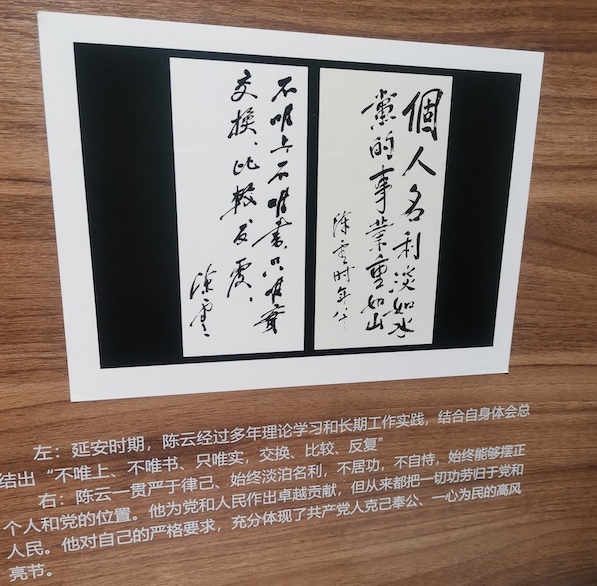 個人名利淡如水
黨的事業重如山
陳雲时年八
不唯上不唯書只唯實
交換、比較、反覆、
陳雲
左：延安时期，陈云经过多年理论学习和长期工作实践，结合自身体会总
结出“不唯上、不唯书、只唯实，交换、比较、反复”
右：陈云一贯严于律己、始终淡泊名利，不居功，不自恃，始终能够摆正
个人和党的位置。他为党和人民作出卓越贡献，但从来都把一切功劳归于党和
人民。他对自己的严格要求，充分体现了共产党人克己奉公、一心为民的高风
亮节。